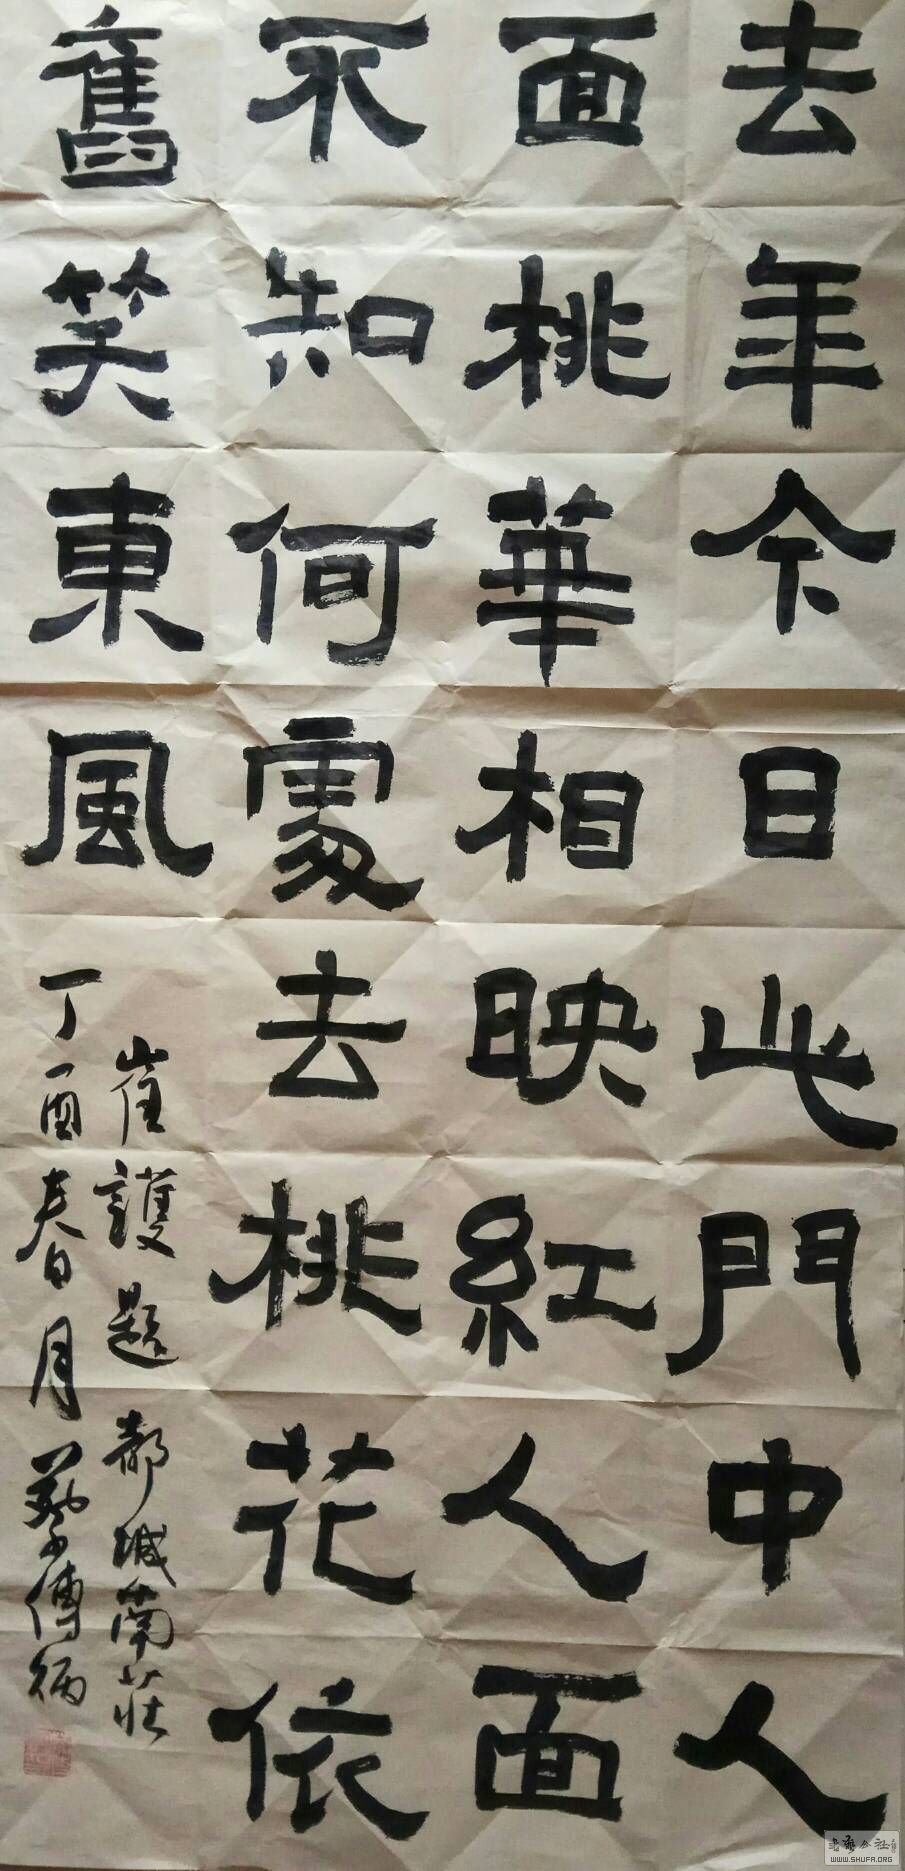 去年今日此門中人
面桃華相映紅人面
不知何處去桃花依
舊笑東風
崔護題都城南莊
丁酉春月
WWW.SHUFA.ORG